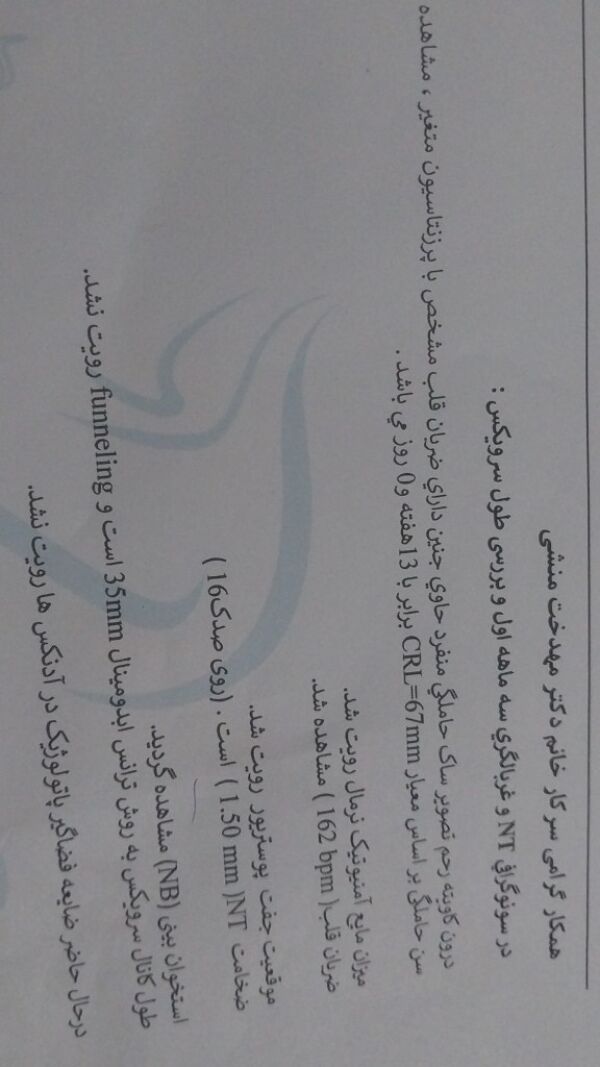 همکار گرامی سرکار خانم دکتر مهدخت منشی
در سونوگرافی NT و غربالگري سه ماهه اول و بررسی طول سرویکس :
درون کاویته رحم تصویر ساک حاملگي منفرد حاوي جنین داراي ضربان قلب مشخص با پرزنتاسیون متغیر ، مشاهده
سن حاملگي بر اساس معیار CRL=67mm برابر با 13هفته و0 روز مي باشد .
میزان مایع آمنیوتیک نرمال رویت شد.
ضربان قلب( 162 bpm ) مشاهده شد.
موقعیت جفت پوستریور رویت شد.
ضخامت NT( 1.50 mm ) است . (روی صدک16 )
استخوان بینی (NB) مشاهده گردید.
طول کانال سرویکس به روش ترانس ابدومینال 35mm است و funneling رویت نشد.
درحال حاضر ضایعه فضاگیر پاتولوژیک در آدنکس ها رویت نشد.